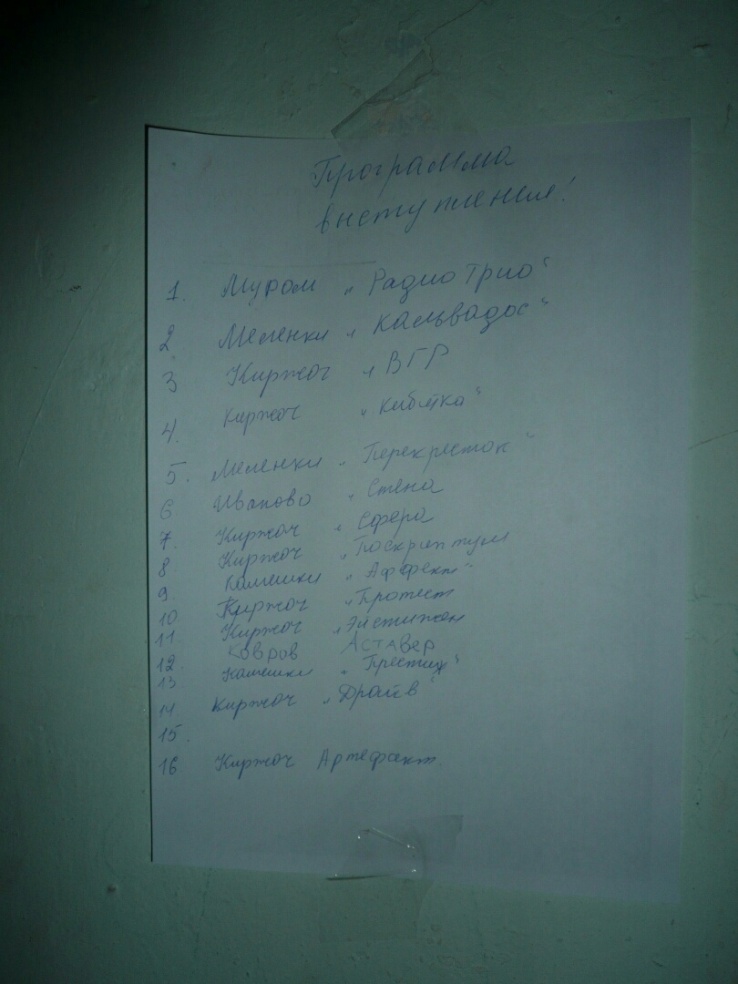 Программа
выступления!
1. Муром „Радио Трио“
2. Меленки „Кальвадос“
3 Киржач „ВГР
4. Киржач „Кибитка“
5. Меленки „Перекресток“
6 Иваново „Стена
7. Киржач „Сфера
8 Киржач
9 Камешки „Аффект“
10 Киржач „Протест
11 Киржач
12. Ковров Аставер
13 Камешки „Престиж“
14 Киржач „Драйв“
15.
16. Киржач Артефакт.